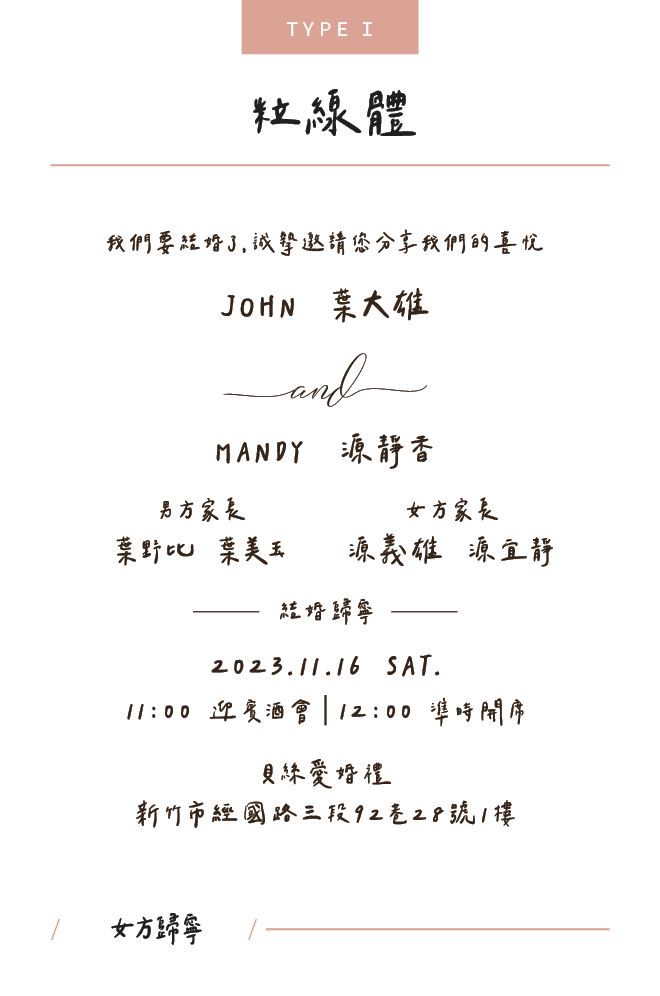 TYPE I
粒線體
我們要結婚了,誠摯邀請您分享我們的喜悅
JOHN 葉大雄
and
MANDY 源靜香
男方家長 女方家長
葉野比 葉美玉 源義雄 源宜靜
結婚歸寧
2023.11.16 SAT.
11:00 迎賓酒會|12:00 準時開席
貝絲愛婚禮
新竹市經國路三段92巷28號1樓
/ 女方歸寧 /